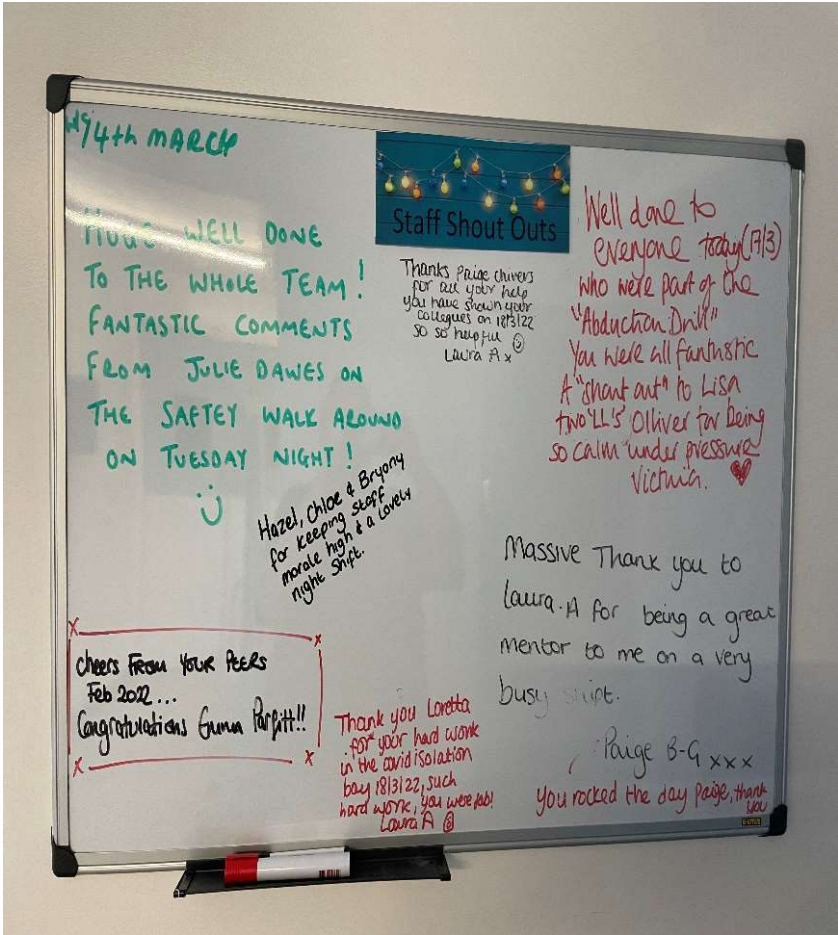 4th MARCH
HUGE WELL DONE
TO THE WHOLE TEAM!
FANTASTIC COMMENTS
FROM JULIE DAWES ON
THE SAFTEY WALK AROUND
ON TUESDAY NIGHT!
Staff Shout Outs
Thanks Paige Chivers
for all your help
you have shown your
collegues on 18/3/22
so so helpful
Laura A x
Well done to
everyone today (17/3)
who were part of the
"Abduction Drill"
You were all fantastic
A "shout out" to Lisa
two 'LL's' Olliver for being
so calm under pressure
Victoria.
Hazel, Chloe & Bryony
for keeping staff
morale high & a lovely
night shift.
Massive Thank you to
Laura.A for being a great
mentor to me on a very
busy shift.
Paige B-G xxx
you rocked the day Paige, thank
you
X X
Cheers FROM YOUR PEERS
Feb 2022...
Congratulations Parfitt!!
X X
Thank you Loretta
for your hard work
in the covid isolation
bay 18/3/22, such
hard work, you were fab!
Laura A